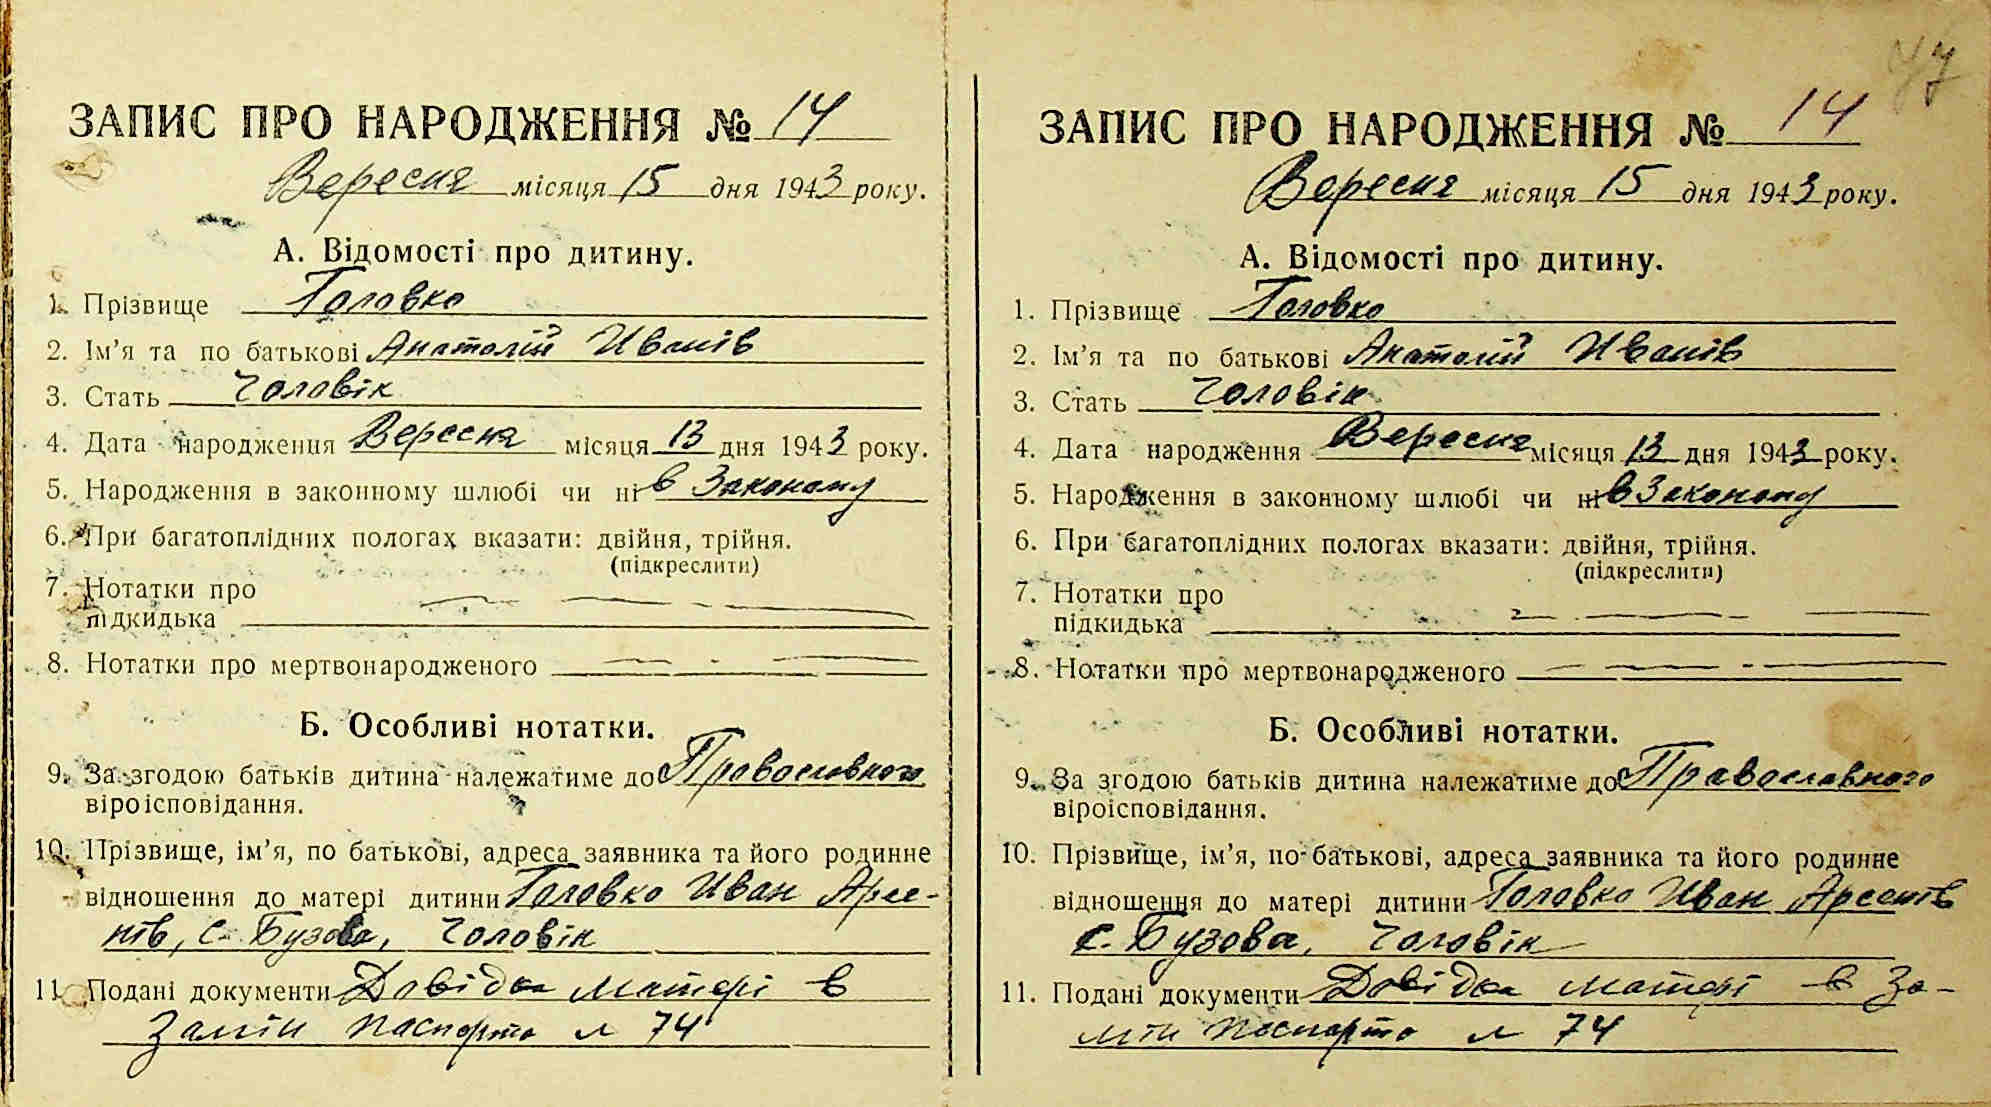 ЗАПИС ПРО НАРОДЖЕННЯ № 14
Вересня місяця 15 дня 1943 року.
А. Відомості про дитину.
1. Прізвище Головко
2. Ім’я та по батькові Анатолій Иванів
3. Стать Чоловік
4. Дата народження Вересня місяця 13 дня 1943 року.
5. Народження в законному шлюбі чи ні в Законому
6. При багатоплідних пологах вказати: двійня, трійня.
(підкреслити)
7. Нотатки про
підкидька
8. Нотатки про мертвонародженого
Б. Особливі нотатки.
9. За згодою батьків дитина належатиме до Православного
віроісповідання.
10. Прізвище, ім’я, по батькові, адреса заявника та його родинне
відношення до матері дитини Головко Иван Арсе-
нтів, с. Бузова, Чоловік
11. Подані документи Довідка матері в
Замін паспорта № 74
47
ЗАПИС ПРО НАРОДЖЕННЯ № 14
Вересня місяця 15 дня 1943 року.
А. Відомості про дитину.
1. Прізвище Головко
2. Ім’я та по батькові Анатолій Иванів
3. Стать Чоловік
4. Дата народження Вересня місяця 13 дня 1943 року.
5. Народження в законному шлюбі чи ні в Законому
6. При багатоплідних пологах вказати: двійня, трійня.
(підкреслити)
7. Нотатки про
підкидька
8. Нотатки про мертвонародженого
Б. Особливі нотатки.
9. За згодою батьків дитина належатиме до Православного
віроісповідання.
10. Прізвище, ім’я, по батькові, адреса заявника та його родинне
відношення до матері дитини Головко Иван Арсентів
с. Бузова, Чоловік
11. Подані документи Довідка матері в За-
мін паспорта № 74